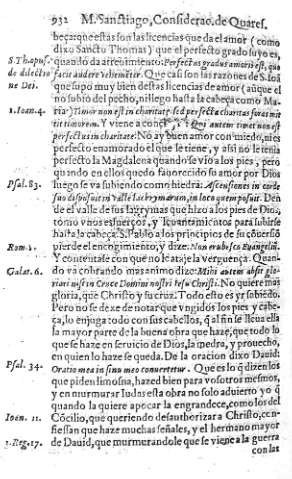 932 M. Sanctiago, Considerao. de Quares.
beça: que estas son las licencias que da el amor (como
dixo Sancto Thomas) que el perfecto grado suyo es,
S. Thopus. quando da atreuimiento. Perfectus gradus amoris est, qua
de dilectio facit audere vehementer. Que casi son las razones de S. Ioã
ne Dei. que supo muy bien destas licencias de amor (aũque el
no subio del pecho, ni llego hasta la cabeça como Ma-
1. Ioan. 4. ria) Timor non est in charitate: sed perfecta charitas foras mit
tit timorem. Y viene a concluir: Qui autem timet non est
perfectus in charitate. No ay buen amor con miedo, ni es
perfecto enamorado el que le tiene, y assi no le tenia
perfecto la Magdalena quando se vio a los pies, pero
quando en ellos quedo fauorecido su amor por Dios
Psal. 83. luego se va subiendo como hiedra. Ascensiones in corde
suo disposuit in valle lachrymarum, in loco quem posuit. Den
de el valle de sus lagrymas que hizo a los pies de Dios,
tomo vnos esfuerços, y leuantamientos para subirse
hasta la cabeça. S. Pablo a los principios de su cõuersiõ
Rom. 1. pierde el encogimiento, y dize. Non erubesco Euangeliũ.
Y contentase con que no le ataje la verguença. Quan-
Galat. 6. do va cobrando mas animo dize: Mihi autem absit glo-
riari nisi in Cruce Domini nostri Iesu Christi. No quiere mas
gloria, que Christo y su cruz. Todo esto es yr subiẽdo.
Pero no se dexe de notar que vngidos los pies y cabe-
ça, lo enjuga todo con sus cabellos, q̃ al fin se lleua ella
la mayor parte de la buena obra que haze, que todo lo
que se haze en seruicio de Dios, la medra, y prouecho,
en quien lo haze se queda. De la oracion dixo Dauid:
Psal. 34. Oratio mea in sinu meo conuertetur. Que es lo q̃ dizen los
que piden limosna, hazed bien para vosotros mesmos,
y en murmurar Iudas esta obra no solo aduierto yo q̃
quando la quiere apocar la engrandece, como los del
Ioan. 11. Cõcilio, que queriendo desauthorizar a Christo, con-
fiessan que haze muchas señales, y el hermano mayor
1. Reg. 17. de Dauid, que murmurandole que se viene a la guerra
con las